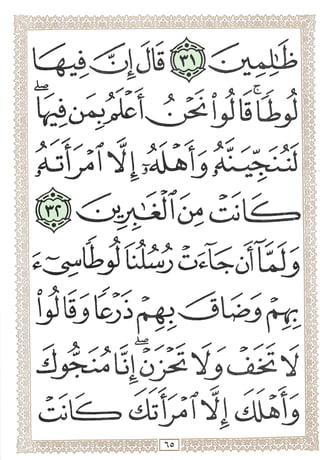 ظَٰلِمِينَ ٣١ قَالَ إِنَّ فِيهَا
لُوطٗاۚ قَالُواْ نَحۡنُ أَعۡلَمُ بِمَن فِيهَاۖ
لَنُنَجِّيَنَّهُۥ وَأَهۡلَهُۥٓ إِلَّا ٱمۡرَأَتَهُۥ
كَانَتۡ مِنَ ٱلۡغَٰبِرِينَ ٣٢
وَلَمَّآ أَن جَآءَتۡ رُسُلُنَا لُوطٗا سِيٓءَ
بِهِمۡ وَضَاقَ بِهِمۡ ذَرۡعٗا وَقَالُواْ
لَا تَخَفۡ وَلَا تَحۡزَنۡ إِنَّا مُنَجُّوكَ
وَأَهۡلَكَ إِلَّا ٱمۡرَأَتَكَ كَانَتۡ
٦٥